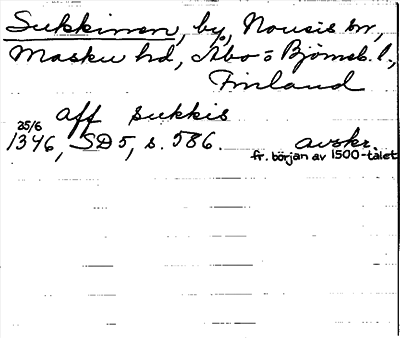 Sukkinen, by, Nousis sn,
Masku hd, Åbo o Björneb. l.,
Finland
aff sukkis
25/6
1346, SD 5, s. 586. avskr.
fr. början av 1500-talet